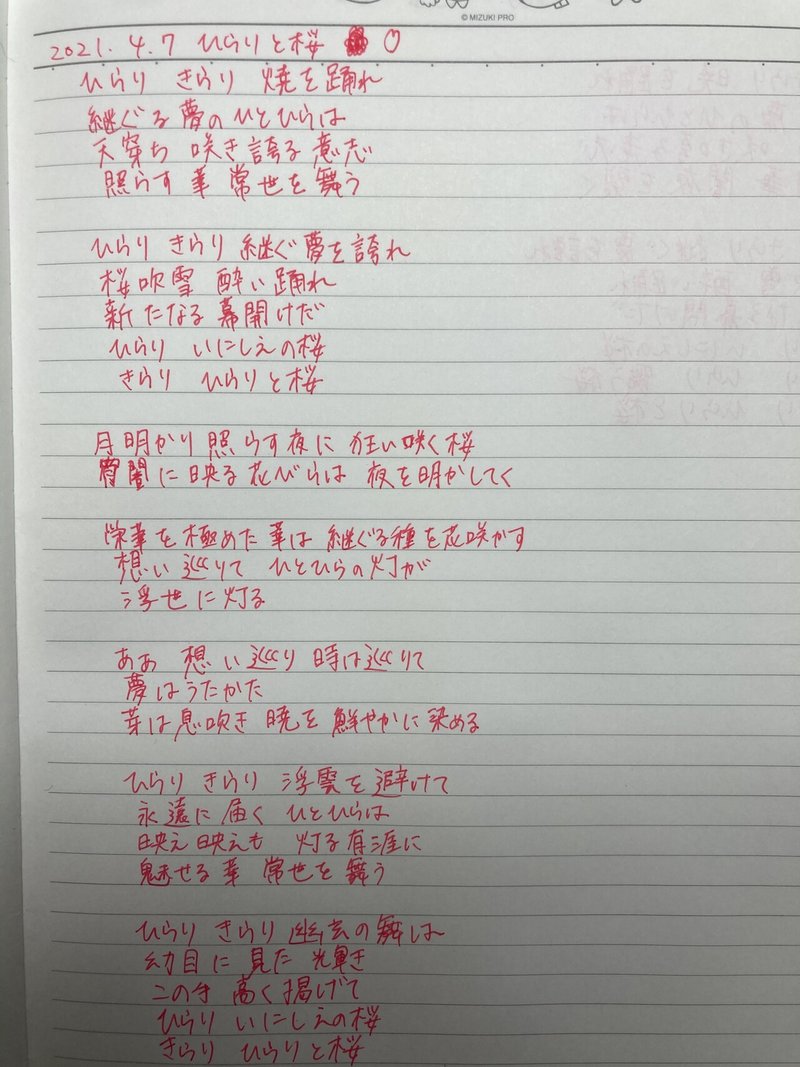 © MIZUKI PRO
2021.4.7 ひらりと桜
ひらり きらり 焼を踊れ
継ぐる夢のひとひらは
天穿ち 咲き誇る意志
照らす華 常世を舞う
ひらり きらり 継ぐ夢を誇れ
桜吹雪 酔い踊れ
新たなる幕開けだ
ひらり いにしえの桜
きらり ひらりと桜
月明かり 照らす夜に 狂い咲く桜
宵闇に映る花びらは 夜を明かしてく
栄華を極めた華は 継ぐる種を花咲かす
想い巡りて ひとひらの灯が
浮世に灯る
ああ 想い巡り 時は巡りて
夢はうたかた
芽は息吹き 暁を鮮やかに染める
ひらり きらり 浮雲を避けて
永遠に届く ひとひらは
映え映えも 灯る有涯に
魅せる華 常世を舞う
ひらり きらり 幽玄の舞は
幼目に見た 光輝き
この手 高く掲げて
ひらり いにしえの桜
きらり ひらりと桜